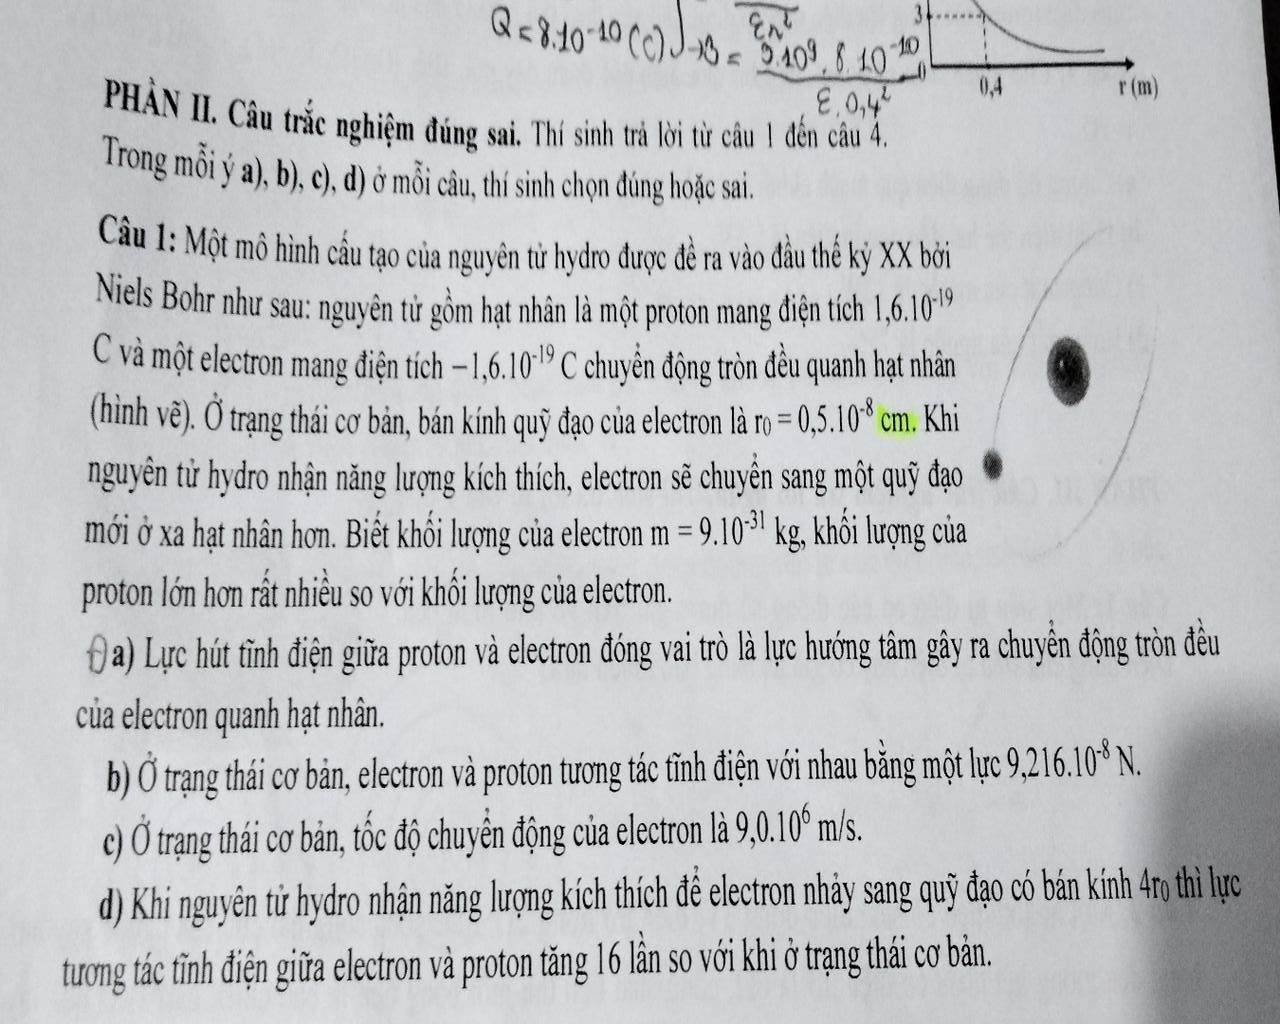 Q = 8.10⁻¹⁰ (C) → 3 = 9.10⁹. 8.10⁻¹⁰
εr²
ε.0,4²
3
0
0,4
r (m)
PHẦN II. Câu trắc nghiệm đúng sai. Thí sinh trả lời từ câu 1 đến câu 4.
Trong mỗi ý a), b), c), d) ở mỗi câu, thí sinh chọn đúng hoặc sai.
Câu 1: Một mô hình cấu tạo của nguyên tử hydro được đề ra vào đầu thế kỷ XX bởi
Niels Bohr như sau: nguyên tử gồm hạt nhân là một proton mang điện tích 1,6.10⁻¹⁹
C và một electron mang điện tích −1,6.10⁻¹⁹ C chuyển động tròn đều quanh hạt nhân
(hình vẽ). Ở trạng thái cơ bản, bán kính quỹ đạo của electron là r₀ = 0,5.10⁻⁸ cm. Khi
nguyên tử hydro nhận năng lượng kích thích, electron sẽ chuyển sang một quỹ đạo
mới ở xa hạt nhân hơn. Biết khối lượng của electron m = 9.10⁻³¹ kg, khối lượng của
proton lớn hơn rất nhiều so với khối lượng của electron.
Đ a) Lực hút tĩnh điện giữa proton và electron đóng vai trò là lực hướng tâm gây ra chuyển động tròn đều
của electron quanh hạt nhân.
b) Ở trạng thái cơ bản, electron và proton tương tác tĩnh điện với nhau bằng một lực 9,216.10⁻⁸ N.
c) Ở trạng thái cơ bản, tốc độ chuyển động của electron là 9,0.10⁶ m/s.
d) Khi nguyên tử hydro nhận năng lượng kích thích để electron nhảy sang quỹ đạo có bán kính 4r₀ thì lực
tương tác tĩnh điện giữa electron và proton tăng 16 lần so với khi ở trạng thái cơ bản.